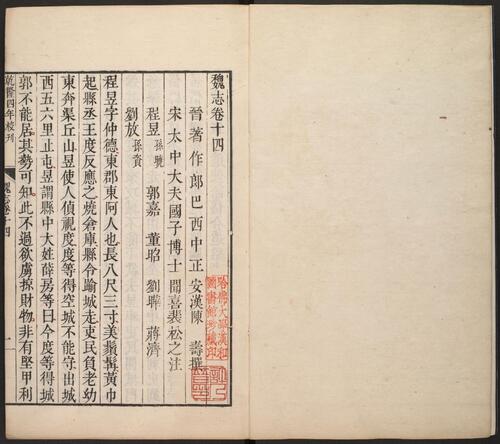 魏志卷十四
晉著作郎巴西中正安漢陳壽撰
宋太中大夫國子博士聞喜裴松之注
程昱孫曉 郭嘉 董昭 劉曄 蔣濟
劉放孫資
程昱字仲德東郡東阿人也長八尺三寸美鬚髯黃巾
起縣丞王度反應之燒倉庫縣令踰城走吏民負老幼
東奔渠丘山昱使人偵視度度等得空城不能守出城
西五六里止屯昱謂縣中大姓薛房等曰今度等得城
郭不能居其勢可知此不過欲虜掠財物非有堅甲利
乾隆四年校刊
魏志卷十四
一
哈佛大學漢和
圖書館珍藏印